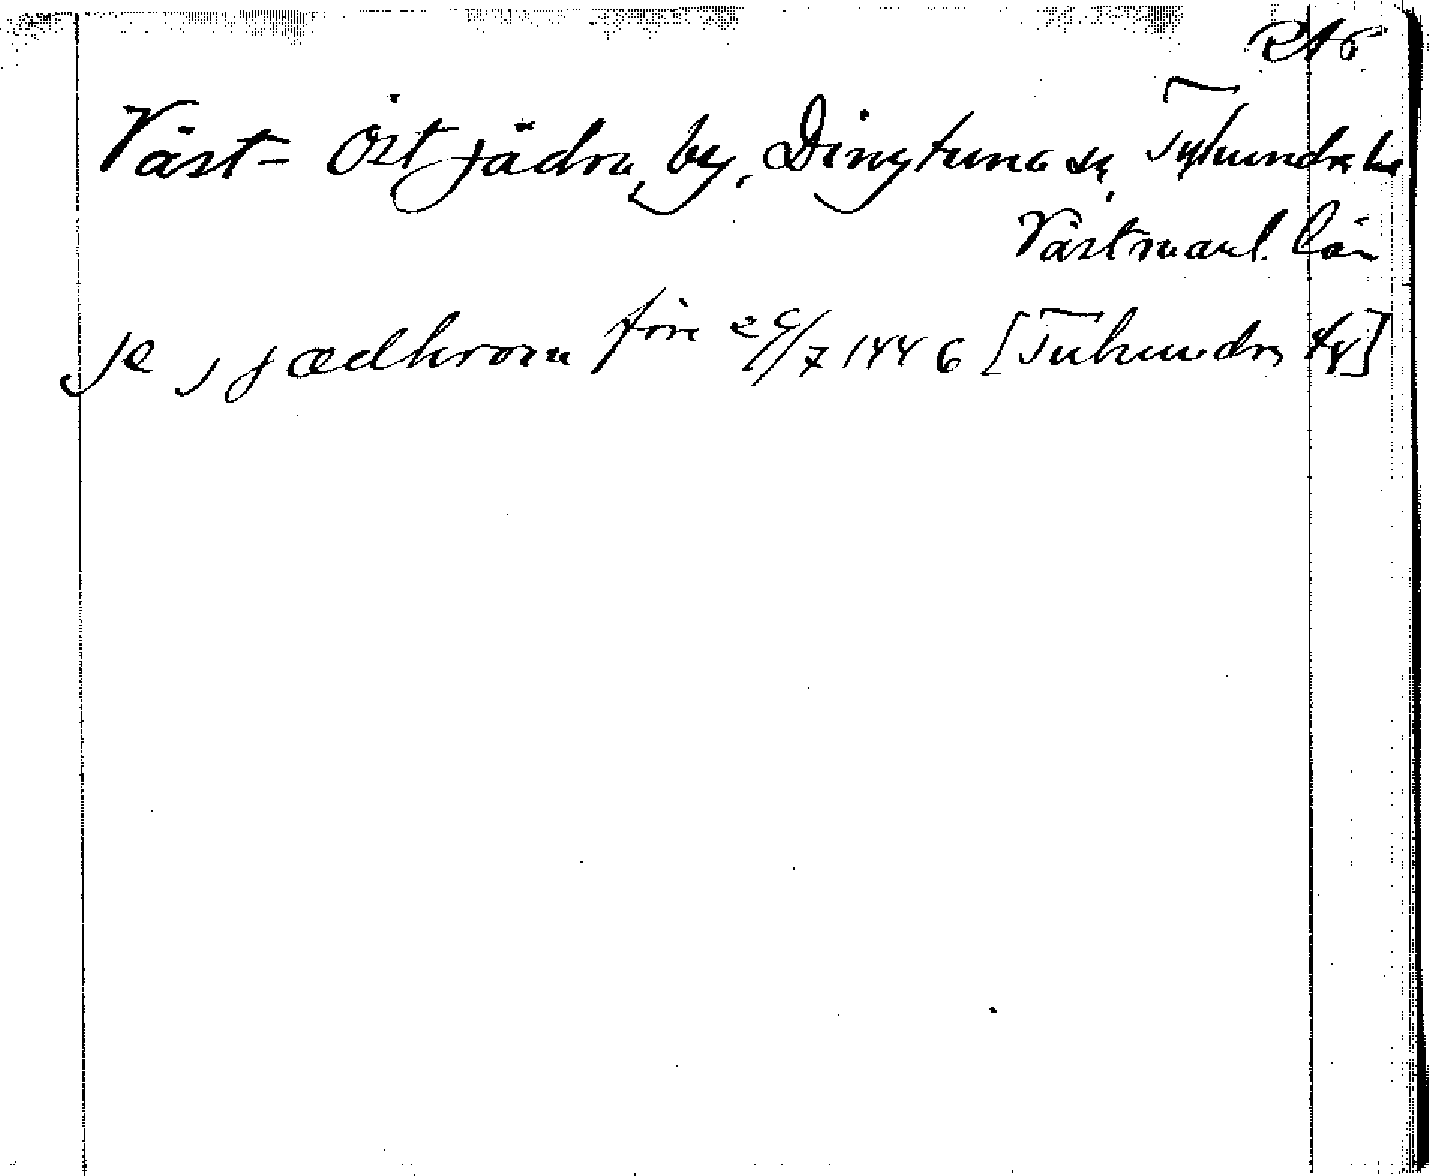 RAp
Väst- Östjädra, by, Dingtuna sn, Tuhundra hd
Västmanl. län
Je, jædhrom före 29/7 1446 [Tuhundra